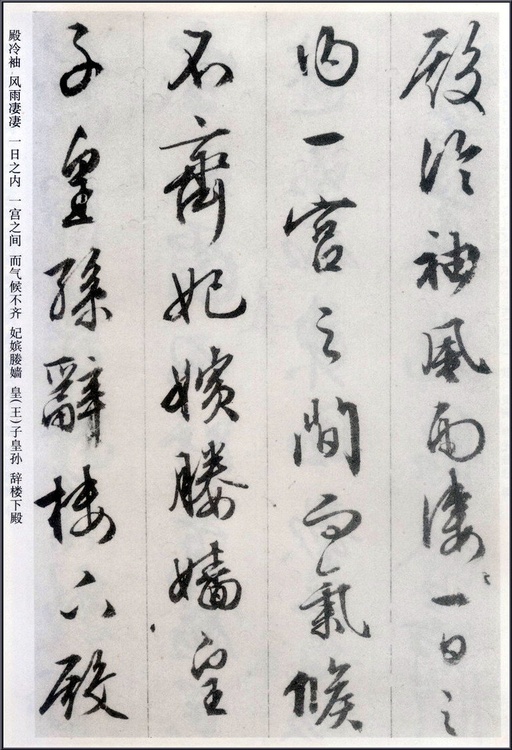 殿冷袖風雨凄〻一日之
内一宮之間而氣候
不齊妃嬪媵嬙皇
子皇孫辭樓下殿
殿冷袖 风雨凄凄 一日之内 一宫之间 而气候不齐 妃嫔媵嫱 皇(王)子皇孙 辞楼下殿